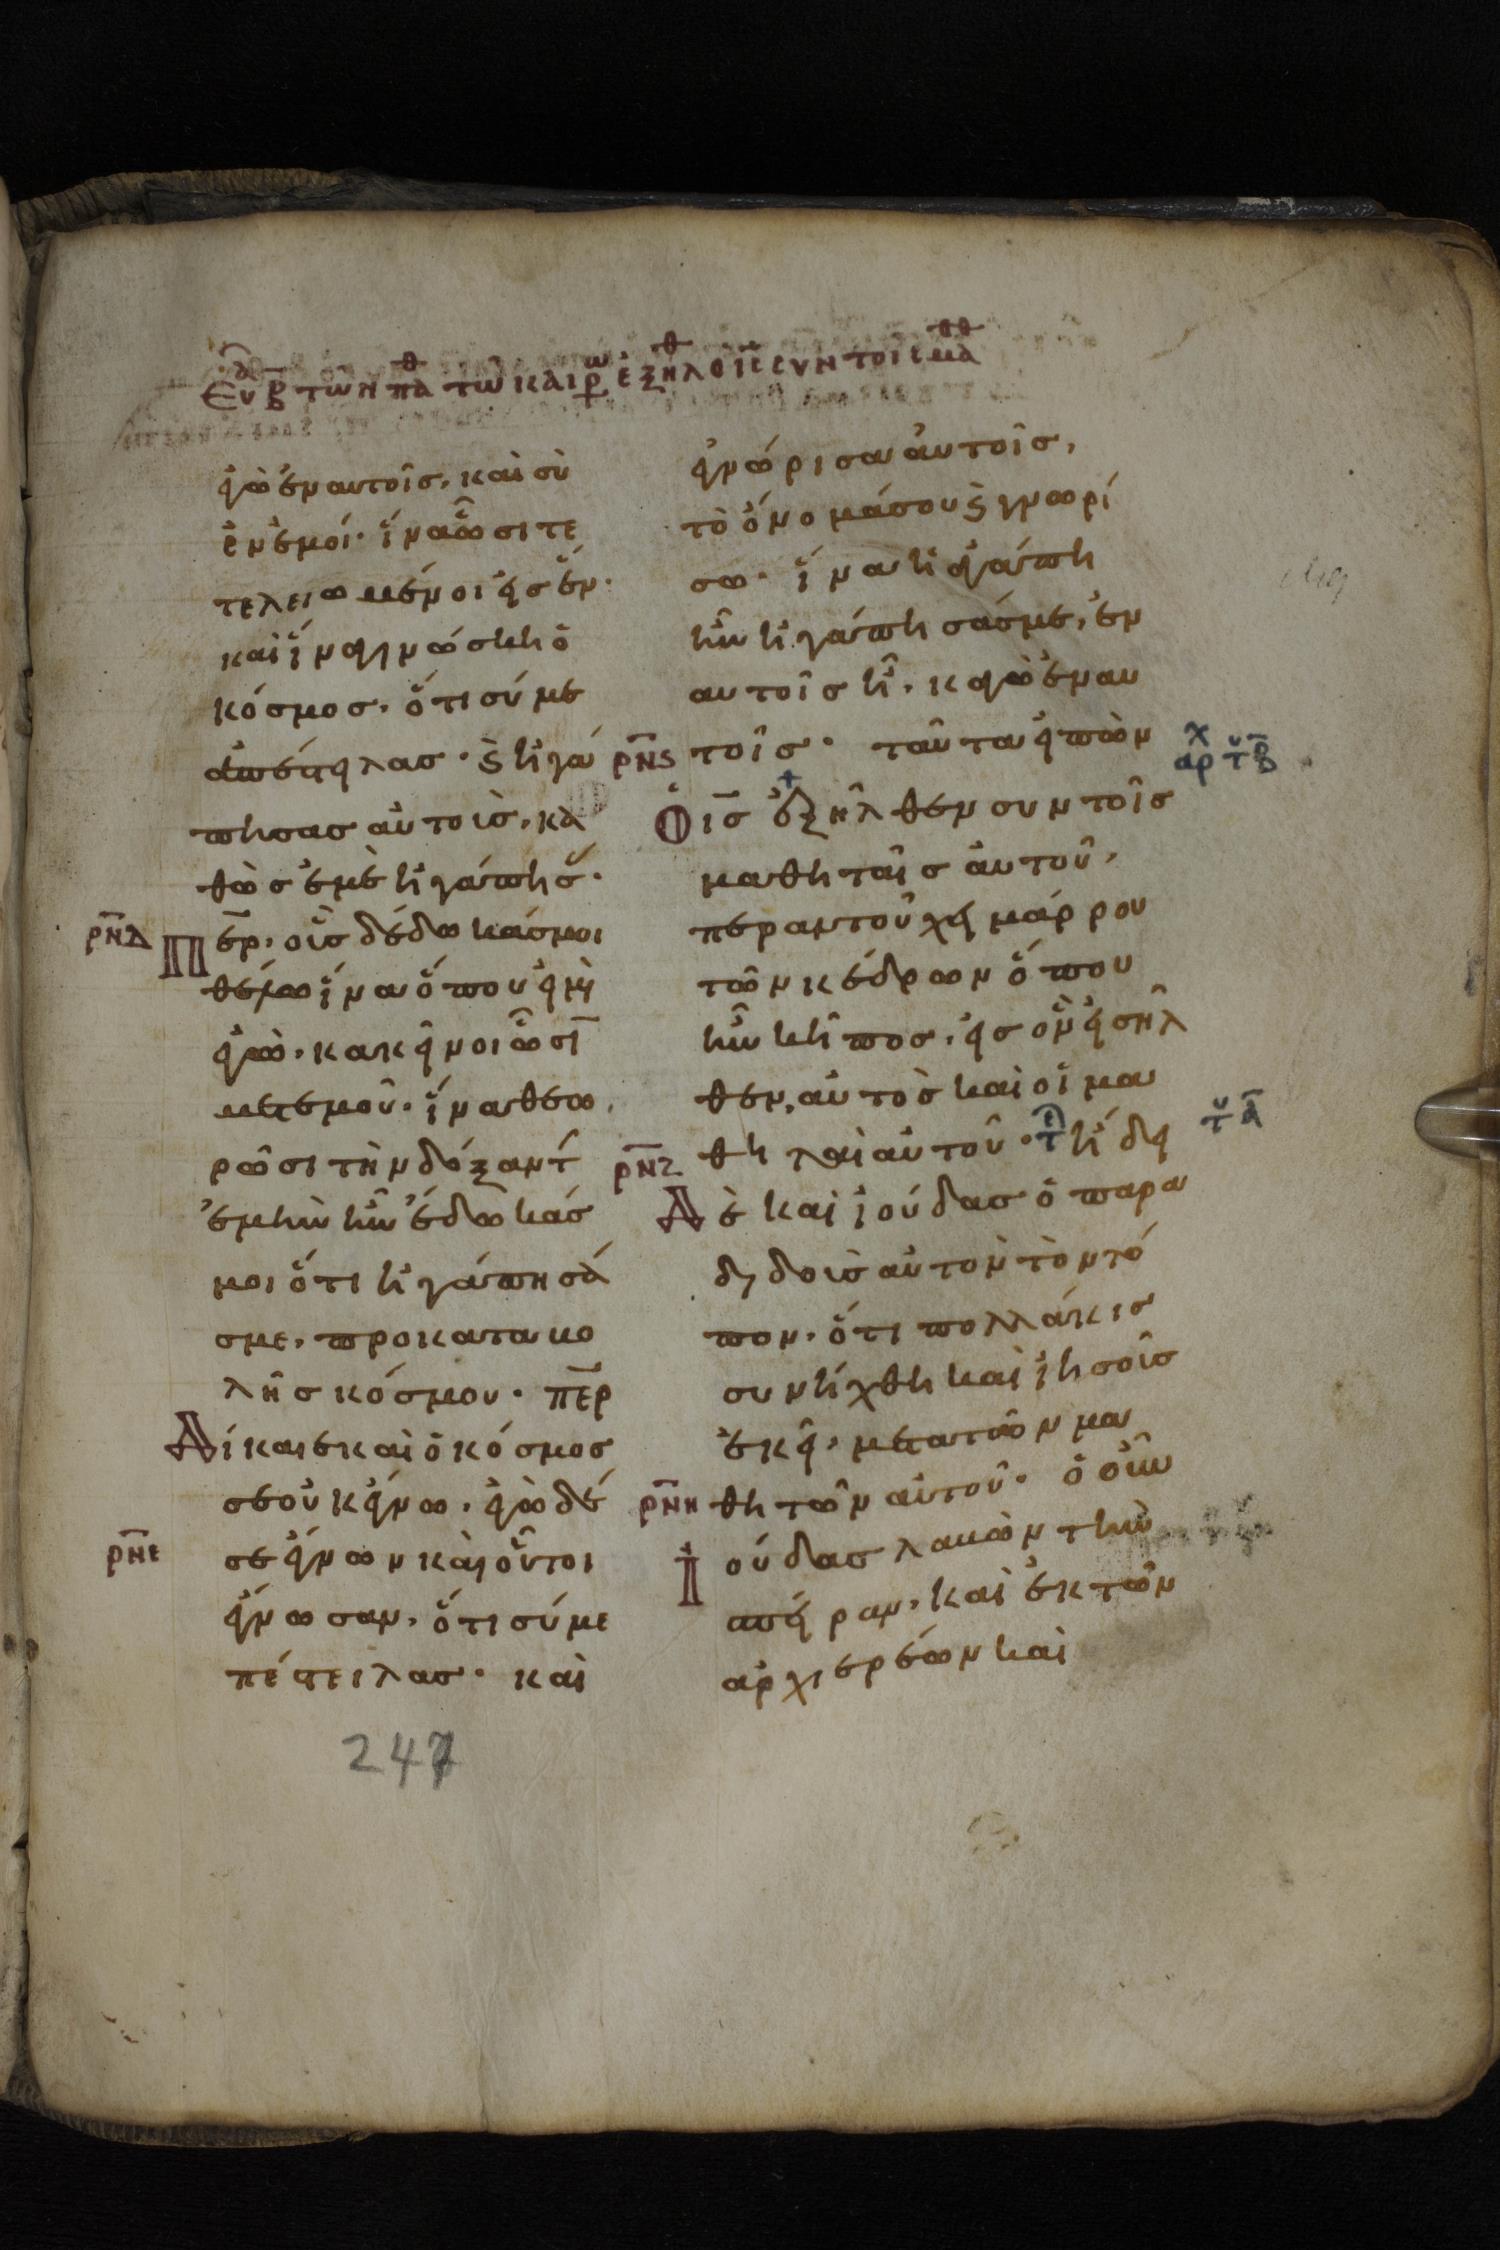 Ευ Β τῶν παθ τῷ καιρω ἐξηλθ ο ιϲ ϲυν τοιϲ μαθθ
ἐγὼ ἐν αυτοῖσ, καὶ σὺ
ἐν ἐμοί· ἵνα ὦσι τε
τελειωμένοι εἰσ ἕν·
καὶ ἵνα γινώσκη ὁ
κόσμοσ, ὅτι σύ με
ἀπέστειλασ· ϗ ἠγά
πησασ αὐτοὺσ, κα
θὼσ ἐμὲ ἠγάπησ·
ρνδ Περ, οὓσ δέδωκάσ μοι
θέλω ἵνα ὅπου εἰμὶ
ἐγὼ, κακεῖνοι ὦσῑ
μετεμοῦ· ἵνα θεω
ρῶσι τὴν δόξαν τ
ἐμὴν ἣν ἔδωκάσ
μοι ὅτι ἠγάπησά
σ με, προ κατα κο
λῆσ κόσμου· περ
Δίκαιε καὶ ὁ κόσμοσ
σε οὐκ ἔγνω, ἐγὼ δέ
ρνε σε ἔγνων καὶ οὗτοι
ἔγνωσαν, ὅτι σύ με
πέστειλασ· καὶ
ἐγνώρισα αὐτοῖσ,
τὸ ὄνομά σου ϗ γνωρί
σω· ἵνα ἡ ἀγάπη
ἣν ἠγάπησάσ με, ἐν
αυτοῖσ ἦ, κἀγὼ ἐν αυ
ρνς τοῖσ· ταῦτα εἰπὼν αρχ του Β
Ὁ ισ ἐξῆλθεν συν τοῖσ
μαθηταῖσ αὐτοῦ,
περαν τοῦ χειμάρρου
τῶν κέδρων ὅπου
ἦν κῆποσ, εἰσ ὃν εἰσῆλ
θεν, αὐτὸσ καὶ οἱ μα
ρνζ θηταὶ αὐτοῦ· τε ἤδει του Α
Δὲ καὶ ἰούδασ ὁ παρα
διδοὺσ αὐτὸν τὸν τό
πον, ὅτι πολλάκισ
συνήχθη καὶ ἰησοῦσ
ἐκεῖ, μετα τῶν μα
ρνη θητῶν αὐτοῦ· ὁ οὖν
Ἰούδασ λαβὼν τὴν
σπεῖραν, καὶ ἐκ τῶν
αρχιερέων καὶ
247